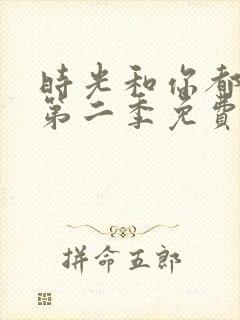 時光和你都
第二季免費
拼命五郎